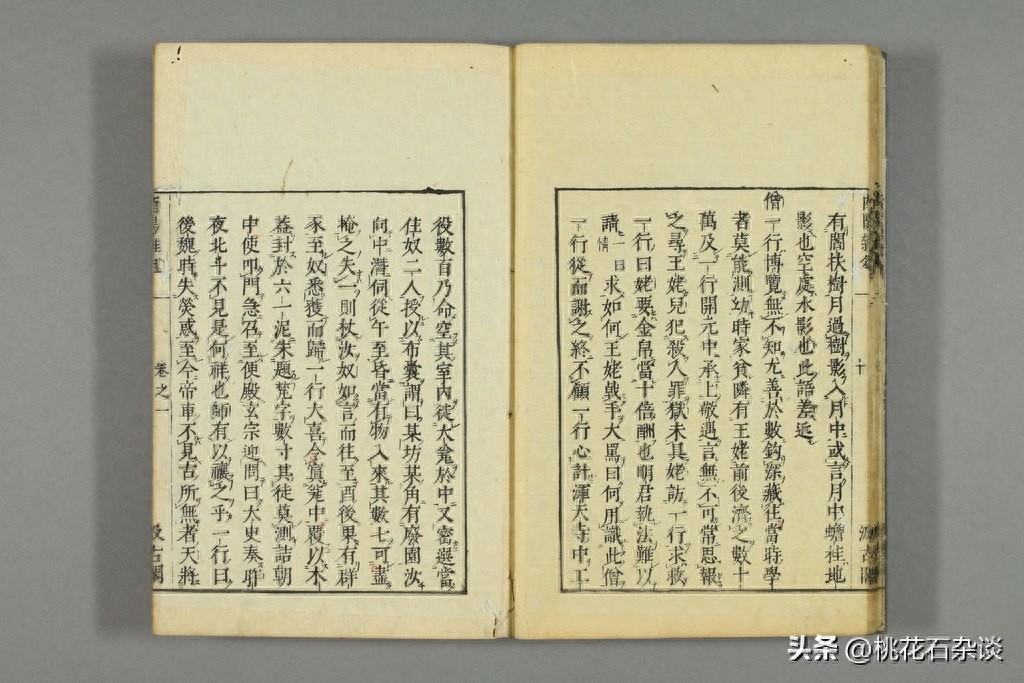 有閻扶樹月過樹影入月中或言月中蟾桂地
影也空處水影也此語差近
僧一行博覽無不知尤善於數鈎深藏往當時學
者莫能測幼時家貧隣有王姥前後濟之數十
萬及一行開元中承上敬遇言無不可常思報
之尋王姥兒犯殺人罪獄未具姥訪一行求救
一行曰姥要金帛當十倍酬也明君執法難以
請
一曰情
求如何王姥戟手大罵曰何用識此僧
一行從而謝之終不顧一行心計渾天寺中工
十
役數百乃命空其室內徙大瓮於中又密選當
住奴二人授以布囊謂曰某坊某角有廢園汝
向中潛伺從午至昏當有物入來其數七可盡
掩之失一則杖汝奴如言而往至酉後果有群
豕至奴悉獲而歸一行大喜令寘瓮中覆以木
蓋封於六一泥朱題梵字數寸其徒莫測詰朝
中使叩門急召至便殿玄宗迎問曰太史奏昨
夜北斗不見是何祥也師有以禳之乎一行曰
後魏時失熒惑至今帝車不見古所無者天將
卷之一
头条 @桃花石杂谈